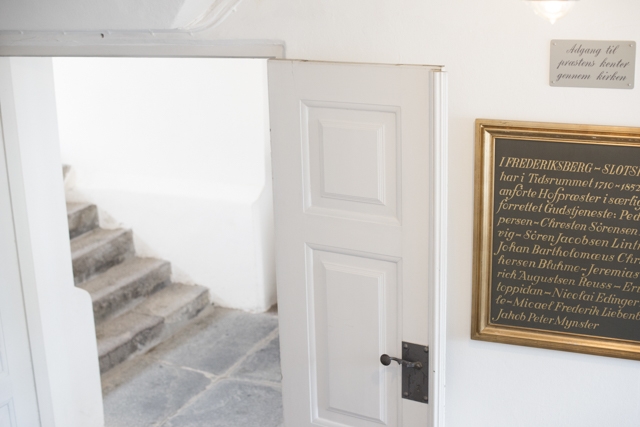 Adgang til
præstens kontor
gennem kirken
I FREDERIKSBERG-SLOTSK
har i Tidsrummet 1710-1852
anförte Hofpræster i særlig
forrettet Gudstjeneste: Ped
persen-Chresten Sörensen
vig-Sören Jacobsen Lint
Johan Bartholomæus Chr
hersen Bluhme-Jeremia
rich Augustsen Reuss-Er
toppidan-Nicolai Edinge
te-Micael Frederik Lieben
Jakob Peter Mynster